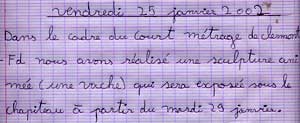 vendredi 25 janvier 2002
Dans le cadre du court métrage de clermont
Fd nous avons réalisé une sculpture ani
mée (une vache) qui sera exposée sous le
chapiteau à partir du mardi 29 janvier.